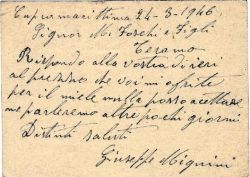 Cupramarittima 24-3-1946
Signor Mi Foschi e Figli
Teramo
Rispondo alla vostra di ieri
al prezzo che voi mi ofrite
per il miele nulla posso accettare
ne parleremo altre pochi giorni
Distinti saluti
Giuseppe Mignini